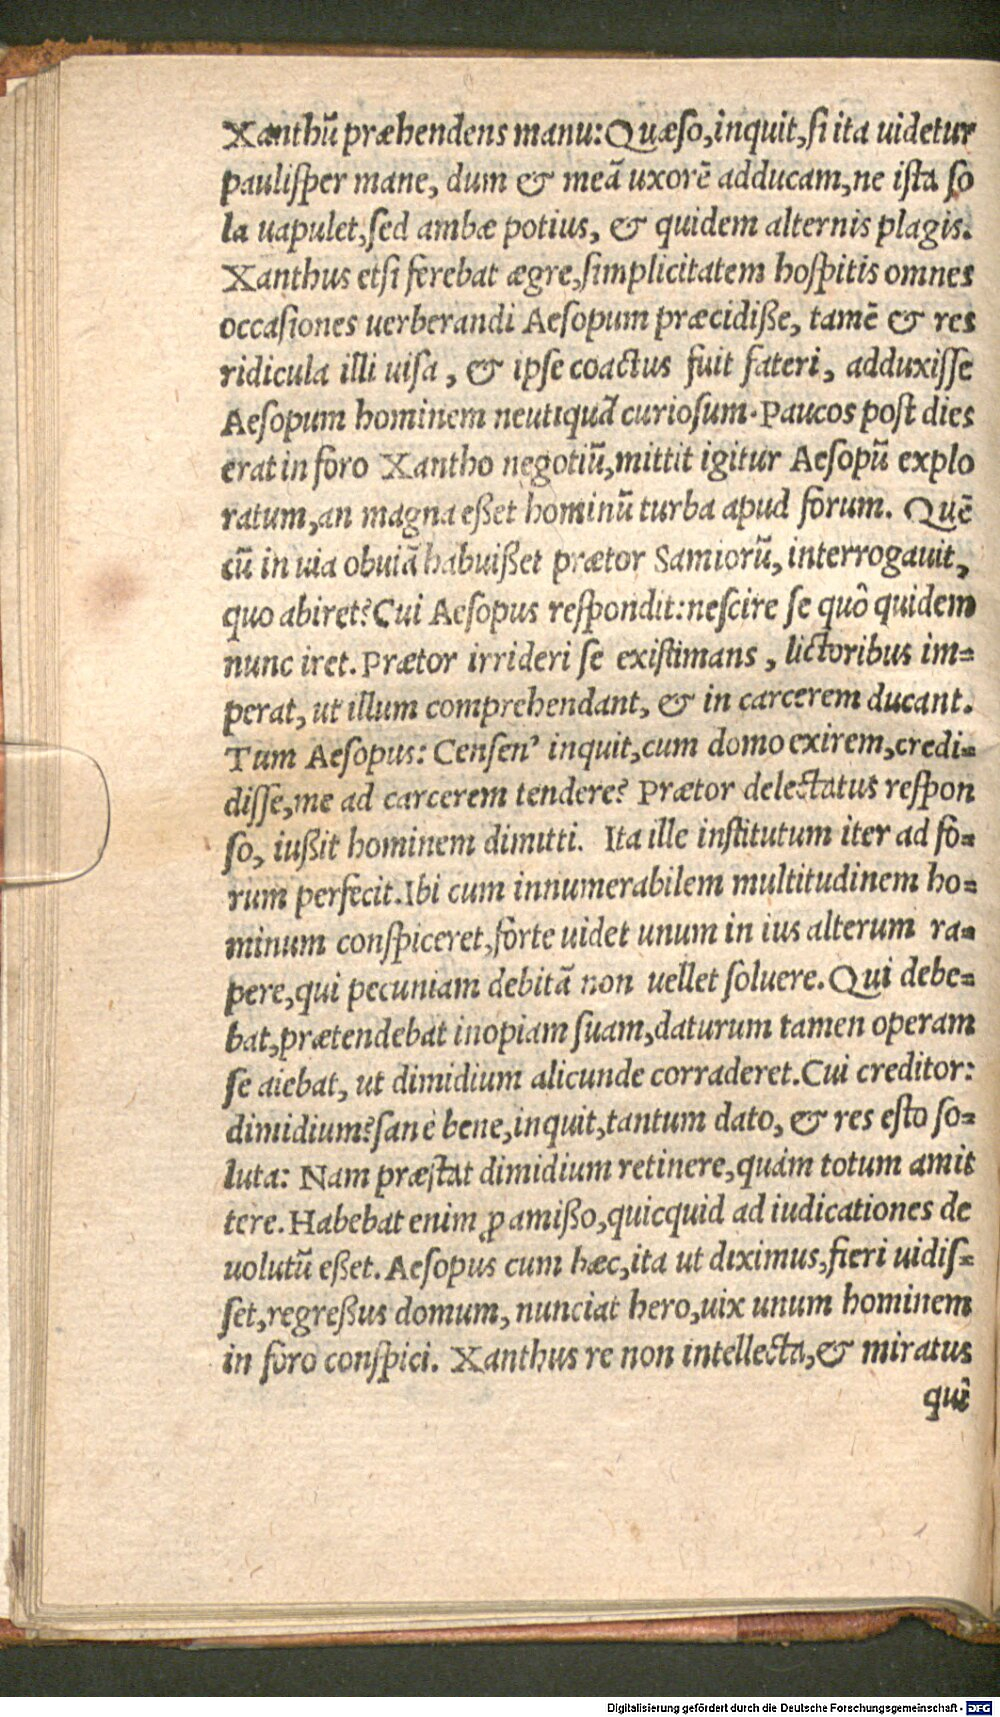 Xanthū præhendens manu: Quæso, inquit, si ita uidetur
paulisper mane, dum & meā uxorē adducam, ne ista so
la uapulet, sed ambæ potius, & quidem alternis plagis.
Xanthus etsi ferebat ægre, simplicitatem hospitis omnes
occasiones uerberandi Aesopum præcidiße, tamē & res
ridicula illi uisa, & ipse coactus fuit fateri, adduxisse
Aesopum hominem neutiquā curiosum. Paucos post dies
erat in foro Xantho negotiū, mittit igitur Aesopū explo
ratum, an magna eßet hominū turba apud forum. Quē
cū in uia obuiā habuißet prætor Samiorū, interrogauit,
quo abiret? Cui Aesopus respondit: nescire se quô quidem
nunc iret. Prætor irrideri se existimans, lictoribus im=
perat, ut illum comprehendant, & in carcerem ducant.
Tum Aesopus: Censen' inquit, cum domo exirem, credi=
disse, me ad carcerem tendere? Prætor delectatus respon
so, iußit hominem dimitti. Ita ille institutum iter ad fo=
rum perfecit. Ibi cum innumerabilem multitudinem ho=
minum conspiceret, forte uidet unum in ius alterum ra=
pere, qui pecuniam debitā non uellet soluere. Qui debe=
bat, prætendebat inopiam suam, daturum tamen operam
se aiebat, ut dimidium alicunde corraderet. Cui creditor:
dimidium? sanè bene, inquit, tantum dato, & res esto so=
luta: Nam præstat dimidium retinere, quàm totum amit
tere. Habebat enim ꝓ amißo, quicquid ad iudicationes de
uolutū eßet. Aesopus cum hæc, ita ut diximus, fieri uidis=
set, regreßus domum, nunciat hero, uix unum hominem
in foro conspici. Xanthus re non intellecta, & miratus
quî
Digitalisierung gefördert durch die Deutsche Forschungsgemeinschaft - DFG